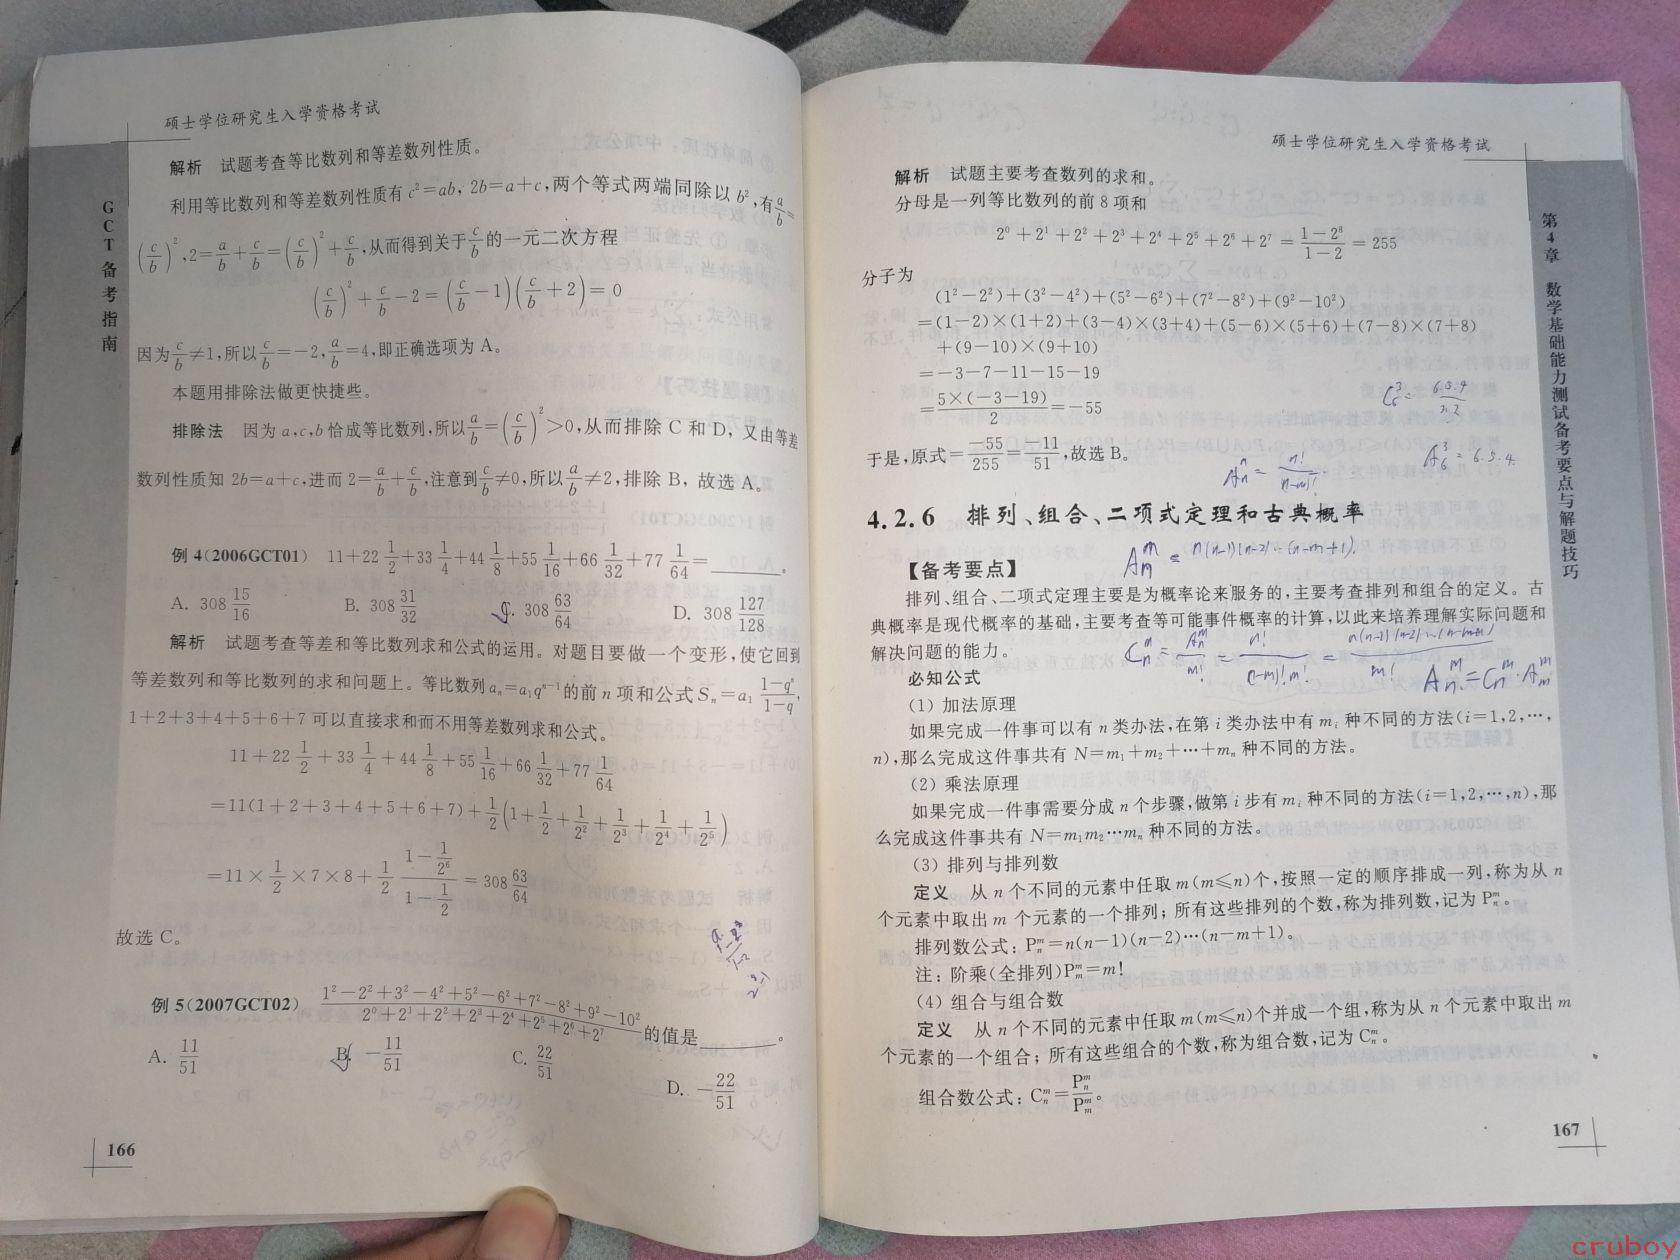 硕士学位研究生入学资格考试
GCT备考指南
解析 试题考查等比数列和等差数列性质。
利用等比数列和等差数列性质有 c²=ab, 2b=a+c,两个等式两端同除以 b²,有 a/b=
(c/b)²,2=a/b+c/b=(c/b)²+c/b,从而得到关于 c/b 的一元二次方程
(c/b)²+c/b-2=(c/b-1)(c/b+2)=0
因为 c/b≠1,所以 c/b=-2,a/b=4,即正确选项为 A。
本题用排除法做更快捷些。
排除法 因为 a,c,b 恰成等比数列,所以 a/b=(c/b)²>0,从而排除 C 和 D, 又由等差
数列性质知 2b=a+c,进而 2=a/b+c/b,注意到 c/b≠0,所以 a/b≠2,排除 B, 故选 A。
例 4(2006GCT01) 11+22 1/2+33 1/4+44 1/8+55 1/16+66 1/32+77 1/64=______。
A. 308 15/16 B. 308 31/32 C. 308 63/64 D. 308 127/128
解析 试题考查等差和等比数列求和公式的运用。对题目要做一个变形,使它回到
等差数列和等比数列的求和问题上。等比数列 aₙ=a₁qⁿ⁻¹ 的前 n 项和公式 Sₙ=a₁ (1-qⁿ)/(1-q),
1+2+3+4+5+6+7 可以直接求和而不用等差数列求和公式。
11+22 1/2+33 1/4+44 1/8+55 1/16+66 1/32+77 1/64
=11(1+2+3+4+5+6+7)+1/2(1+1/2+1/2²+1/2³+1/2⁴+1/2⁵)
=11×1/2×7×8+1/2 (1-1/2⁶)/(1-1/2)=308 63/64
故选 C。
例 5(2007GCT02) (1²-2²+3²-4²+5²-6²+7²-8²+9²-10²)/(2⁰+2¹+2²+2³+2⁴+2⁵+2⁶+2⁷) 的值是______。
A. 11/51 B. -11/51 C. 22/51 D. -22/51
166
硕士学位研究生入学资格考试
第4章 数学基础能力测试备考要点与解题技巧
解析 试题主要考查数列的求和。
分母是一列等比数列的前 8 项和
2⁰+2¹+2²+2³+2⁴+2⁵+2⁶+2⁷=(1-2⁸)/(1-2)=255
分子为
(1²-2²)+(3²-4²)+(5²-6²)+(7²-8²)+(9²-10²)
=(1-2)×(1+2)+(3-4)×(3+4)+(5-6)×(5+6)+(7-8)×(7+8)
+(9-10)×(9+10)
=-3-7-11-15-19
=5×(-3-19)/2=-55
于是,原式=-55/255=-11/51,故选 B。
A₆³=6.5.4.
4.2.6 排列、组合、二项式定理和古典概率
【备考要点】
排列、组合、二项式定理主要是为概率论来服务的,主要考查排列和组合的定义。古
典概率是现代概率的基础,主要考查等可能事件概率的计算,以此来培养理解实际问题和
解决问题的能力。
必知公式
(1) 加法原理
如果完成一件事可以有 n 类办法,在第 i 类办法中有 mᵢ 种不同的方法(i=1,2,…,
n),那么完成这件事共有 N=m₁+m₂+…+mₙ 种不同的方法。
(2) 乘法原理
如果完成一件事需要分成 n 个步骤,做第 i 步有 mᵢ 种不同的方法(i=1,2,…,n),那
么完成这件事共有 N=m₁m₂…mₙ 种不同的方法。
(3) 排列与排列数
定义 从 n 个不同的元素中任取 m(m≤n)个,按照一定的顺序排成一列,称为从 n
个元素中取出 m 个元素的一个排列; 所有这些排列的个数,称为排列数,记为 Pₙᵐ。
排列数公式: Pₙᵐ=n(n-1)(n-2)…(n-m+1)。
注: 阶乘(全排列)Pₘᵐ=m!
(4) 组合与组合数
定义 从 n 个不同的元素中任取 m(m≤n)个并成一个组,称为从 n 个元素中取出 m
个元素的一个组合; 所有这些组合的个数,称为组合数,记为 Cₙᵐ。
组合数公式: Cₙᵐ=Pₙᵐ/Pₘᵐ。
167
cruboy